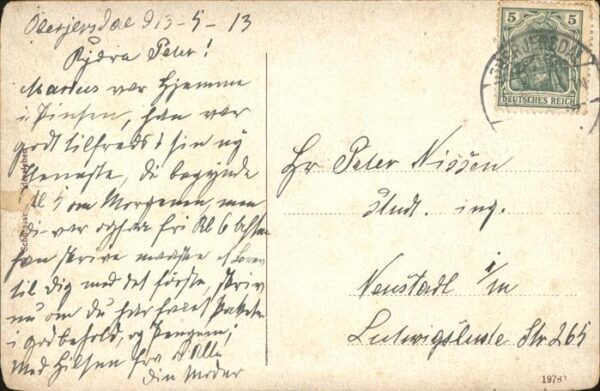 Oberjersdal d 13-5-13
Kjære Peter!
Marius var hjemme
i Pinsen, han var
godt tilfreds i sin ny
Tieneste, di begynde
Kl 5 om Morgenen men
di var ogsaa fri Kl 6
han skrive maaske
til dig med det første, skriv
nu om du har faaet Pakken
i godbehold, og Pengene;
med Hilsen fra Alle
din Moder
5 5
DEUTSCHES REICH
OBERJERSDAL
Hr Peter Nissen
Stud. ing.
Neustadt i/m
Ludwigsluste Str. 265
1978